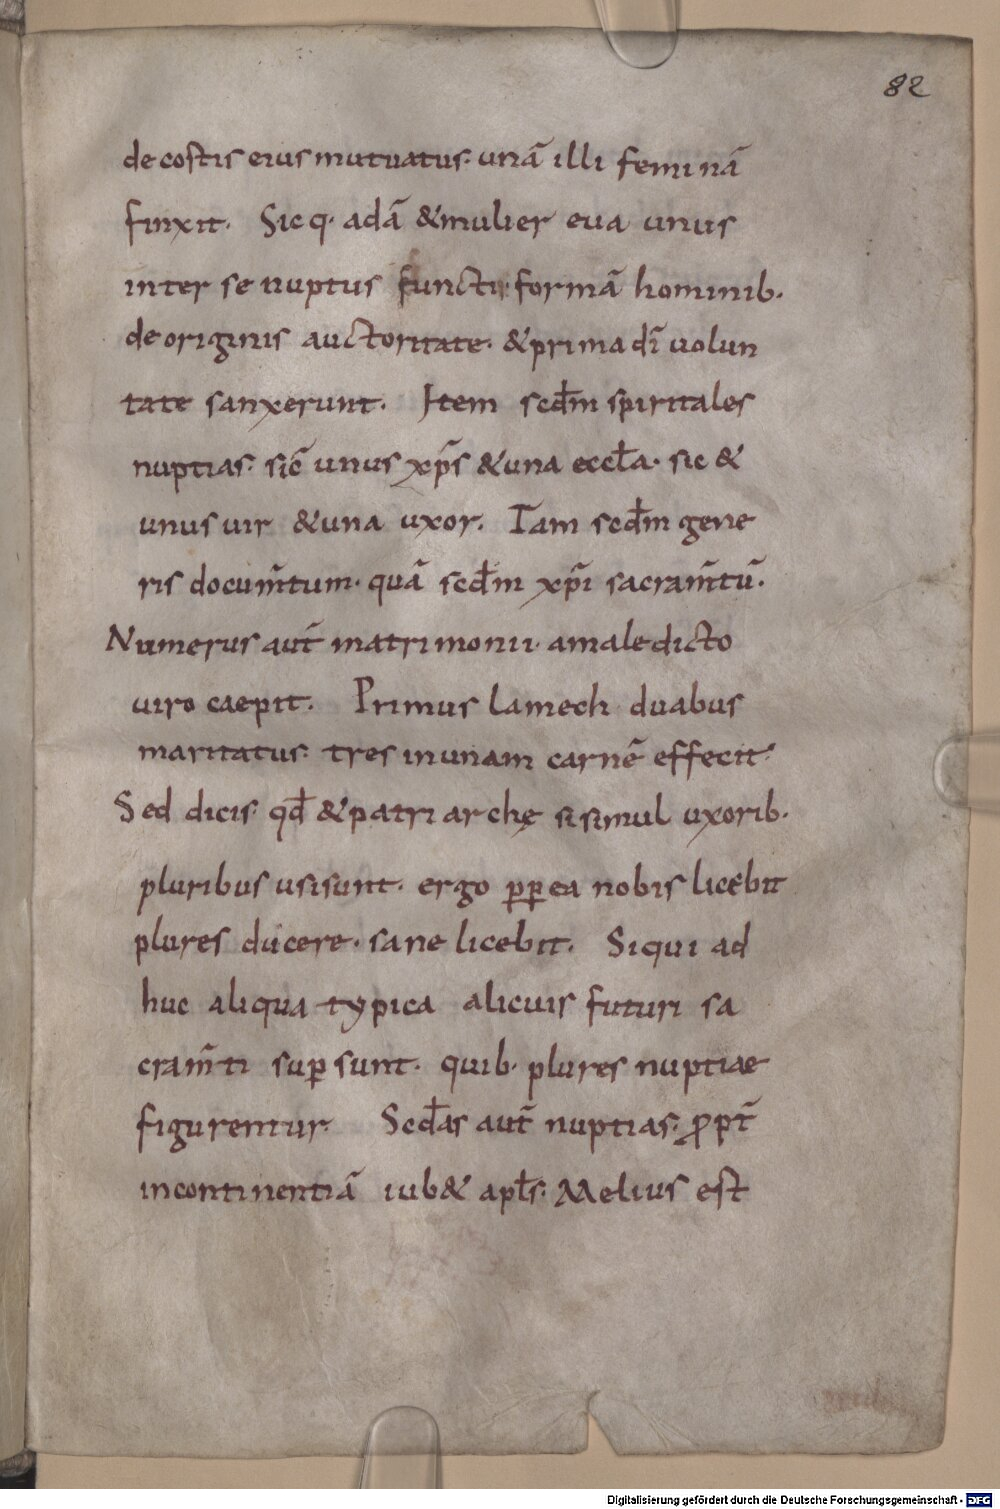 82
de costis eius mutuatus· unā illi feminā
finxit· Sicq· adā & mulier eua unus
inter se nuptus functi formā hominib·
de originis auctoritate· & prima dī uolun
tate sanxerunt· Item scđm spiritales
nuptias· sic̄ unus xp̄s & una eccła· sic &
unus uir & una uxor· Tam scđm gene
ris docum̄tum· quā scđm xp̄i sacram̄tū·
Numerus aut̄ matrimonii· a maledicto
uiro caepit· Primus lamech duabus
maritatus· tres in unam carnē effecit·
Sed dicis· qđ & patriarchę si simul uxorib·
pluribus usi sunt· ergo ꝓpea nobis licebit
plures ducere· sane licebit· Siqui ad
huc aliqua typica alicuis futuri sa
cram̄ti suꝑsunt· quib· plures nuptiae
figurentur· Scđas aut̄ nuptias· ꝓpt̄
incontinentiā iub& apłs· Melius est
Digitalisierung gefördert durch die Deutsche Forschungsgemeinschaft - DFG